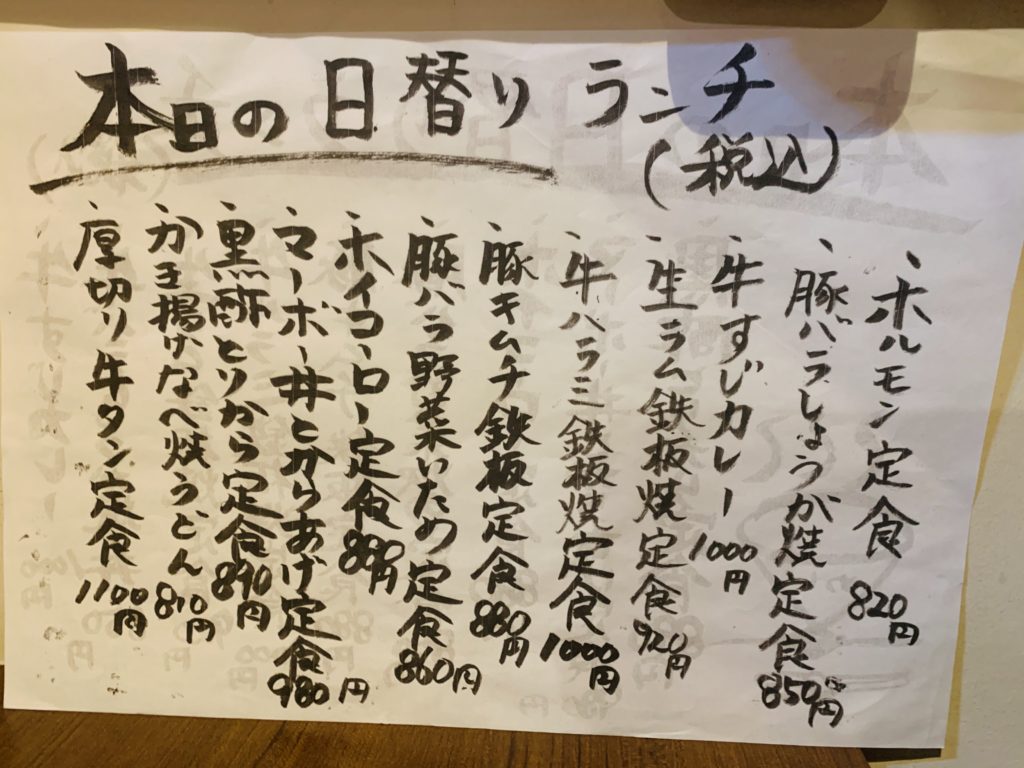 本日の日替りランチ
(税込)
、ホルモン定食 820円
、豚バラしょうが焼定食 850円
、牛すじカレー 1000円
、生ラム鉄板焼定食 920円
、牛ハラミ鉄板焼定食 1000円
、豚キムチ鉄板定食 880円
、豚バラ野菜いため定食 860円
、ホイコーロー定食 880円
、マーボー丼とからあげ定食 980円
、黒酢とりから定食 890円
、かき揚げなべ焼うどん 810円
、厚切り牛タン定食 1100円